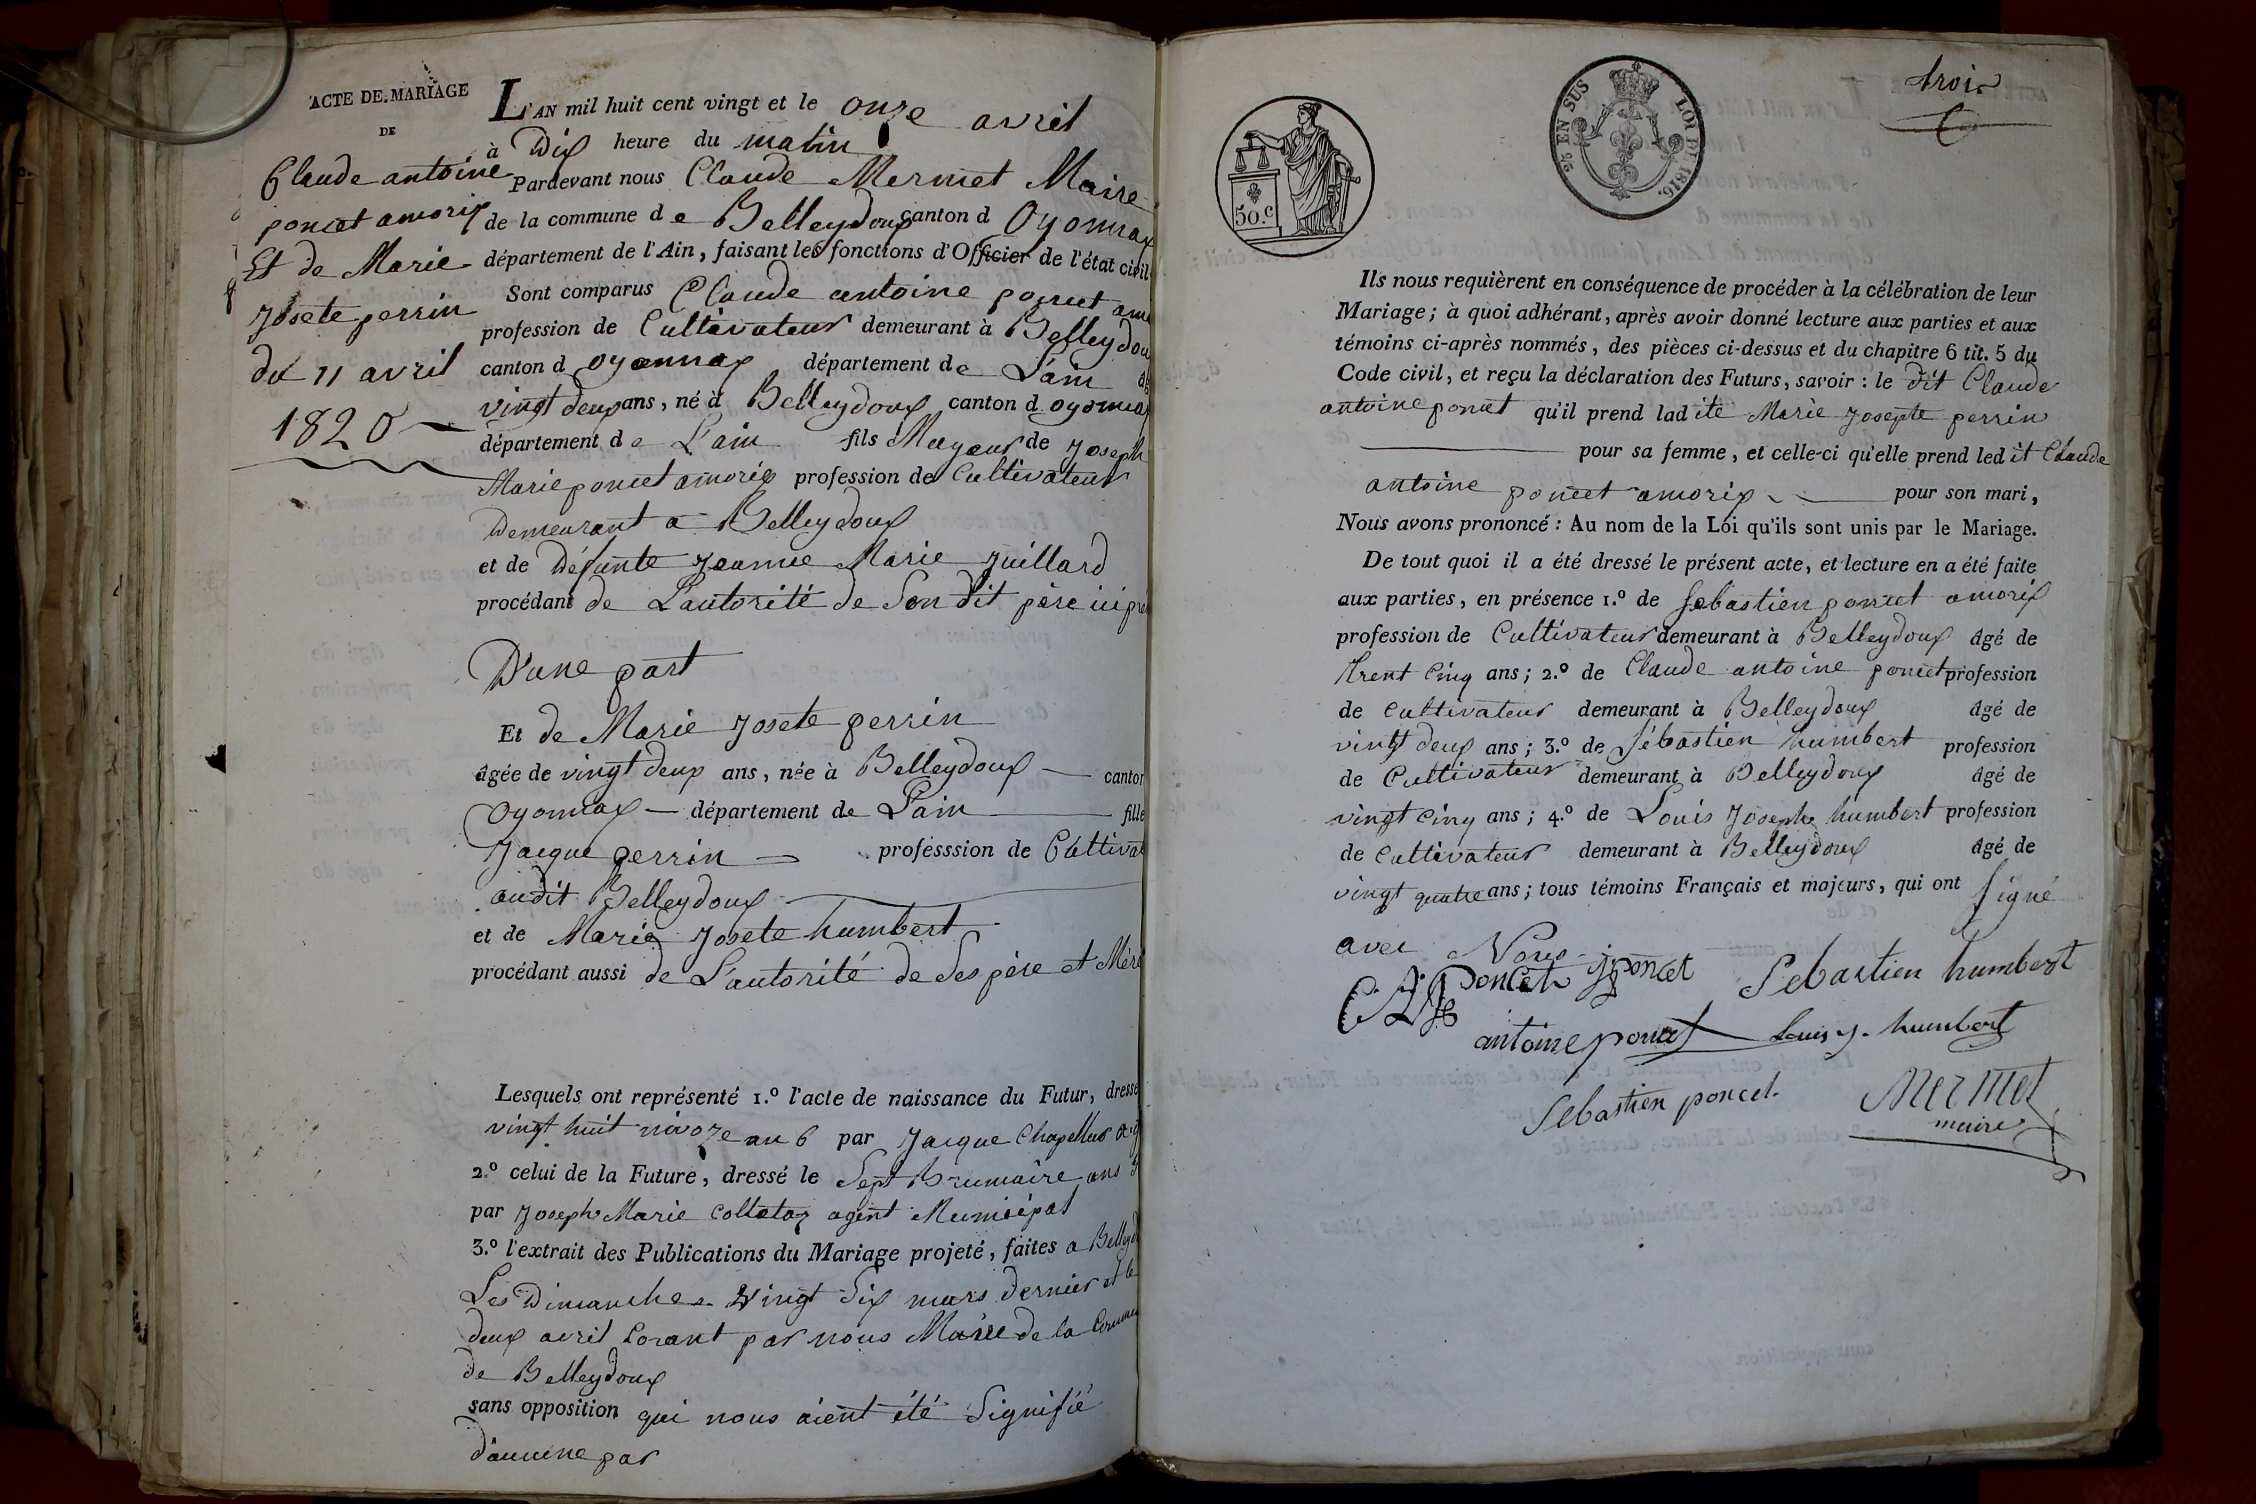 ACTE DE MARIAGE
DE
Claude antoine
poncet amorix
Et de Marie
Josete perrin
du 11 avril
1820
L'AN mil huit cent vingt et le onze avril
à Dix heure du matin
Pardevant nous Claude Mermet Maire
de la commune de Belleydoux canton d Oyonnax
département de l'Ain, faisant les fonctions d'Officier de l'état civil
Sont comparus Claude antoine poncet amo
profession de Cultivateur demeurant à Belleydoux
canton d oyonnax département de Lain âg
vingt deux ans, né à Belleydoux canton d oyonnax
département de L'ain fils Mageur de Joseph
Marie poncet amorix profession de Cultivateur
Demeurant a Belleydoux
et de Défunte Jeanne Marie Juillard
procédant de L'autorité de Son dit père ici pre
D'une part
Et de Marie Josete perrin
âgée de vingt deux ans, née à Belleydoux canton
Oyonnax département de Lain fille
Jacque perrin professsion de Cultivat
audit Belleydoux
et de Marie Josete humbert
procédant aussi de L'autorité de Ses père et Mère
Lesquels ont représenté 1.º l'acte de naissance du Futur, dressé
vingt huit nivoze an 6 par Jacque Chapellus
2.º celui de la Future, dressé le Sept Brumaire ans
par Joseph Marie Colletaz agent Municipal
3.º l'extrait des Publications du Mariage projeté, faites a Belleyd
Les Dimanche Vingt Six mars Dernier et le
deux avril Corant par nous Maire de la Commune
de Belleydoux
sans opposition qui nous aient été Signifié
d'aucune par
trois
50.c
25 EN SUS
LOI DE 1816.
Ils nous requièrent en conséquence de procéder à la célébration de leur
Mariage; à quoi adhérant, après avoir donné lecture aux parties et aux
témoins ci-après nommés, des pièces ci-dessus et du chapitre 6 tit. 5 du
Code civil, et reçu la déclaration des Futurs, savoir : le dit Claude
antoine poncet qu'il prend ladite Marie Josepte perrin
pour sa femme, et celle-ci qu'elle prend led it Claude
antoine poncet amorix pour son mari,
Nous avons prononcé : Au nom de la Loi qu'ils sont unis par le Mariage.
De tout quoi il a été dressé le présent acte, et lecture en a été faite
aux parties, en présence 1.º de Sebastien poncet amorix
profession de Cultivateur demeurant à Belleydoux âgé de
trent Cinq ans; 2.º de Claude antoine poncet profession
de Cultivateur demeurant à Belleydoux âgé de
vingt deux ans; 3.º de Sébastien humbert profession
de Cultivateur demeurant à Belleydoux âgé de
vingt Cinq ans; 4.º de Louis Joseph humbert profession
de Cultivateur demeurant à Belleydoux âgé de
vingt quatre ans; tous témoins Français et majeurs, qui ont Signé
avec Nous
C A Poncet jponcet Sebastien humbert
antoine poncet Louis J. humbert
Sebastien poncet. Mermet
maire